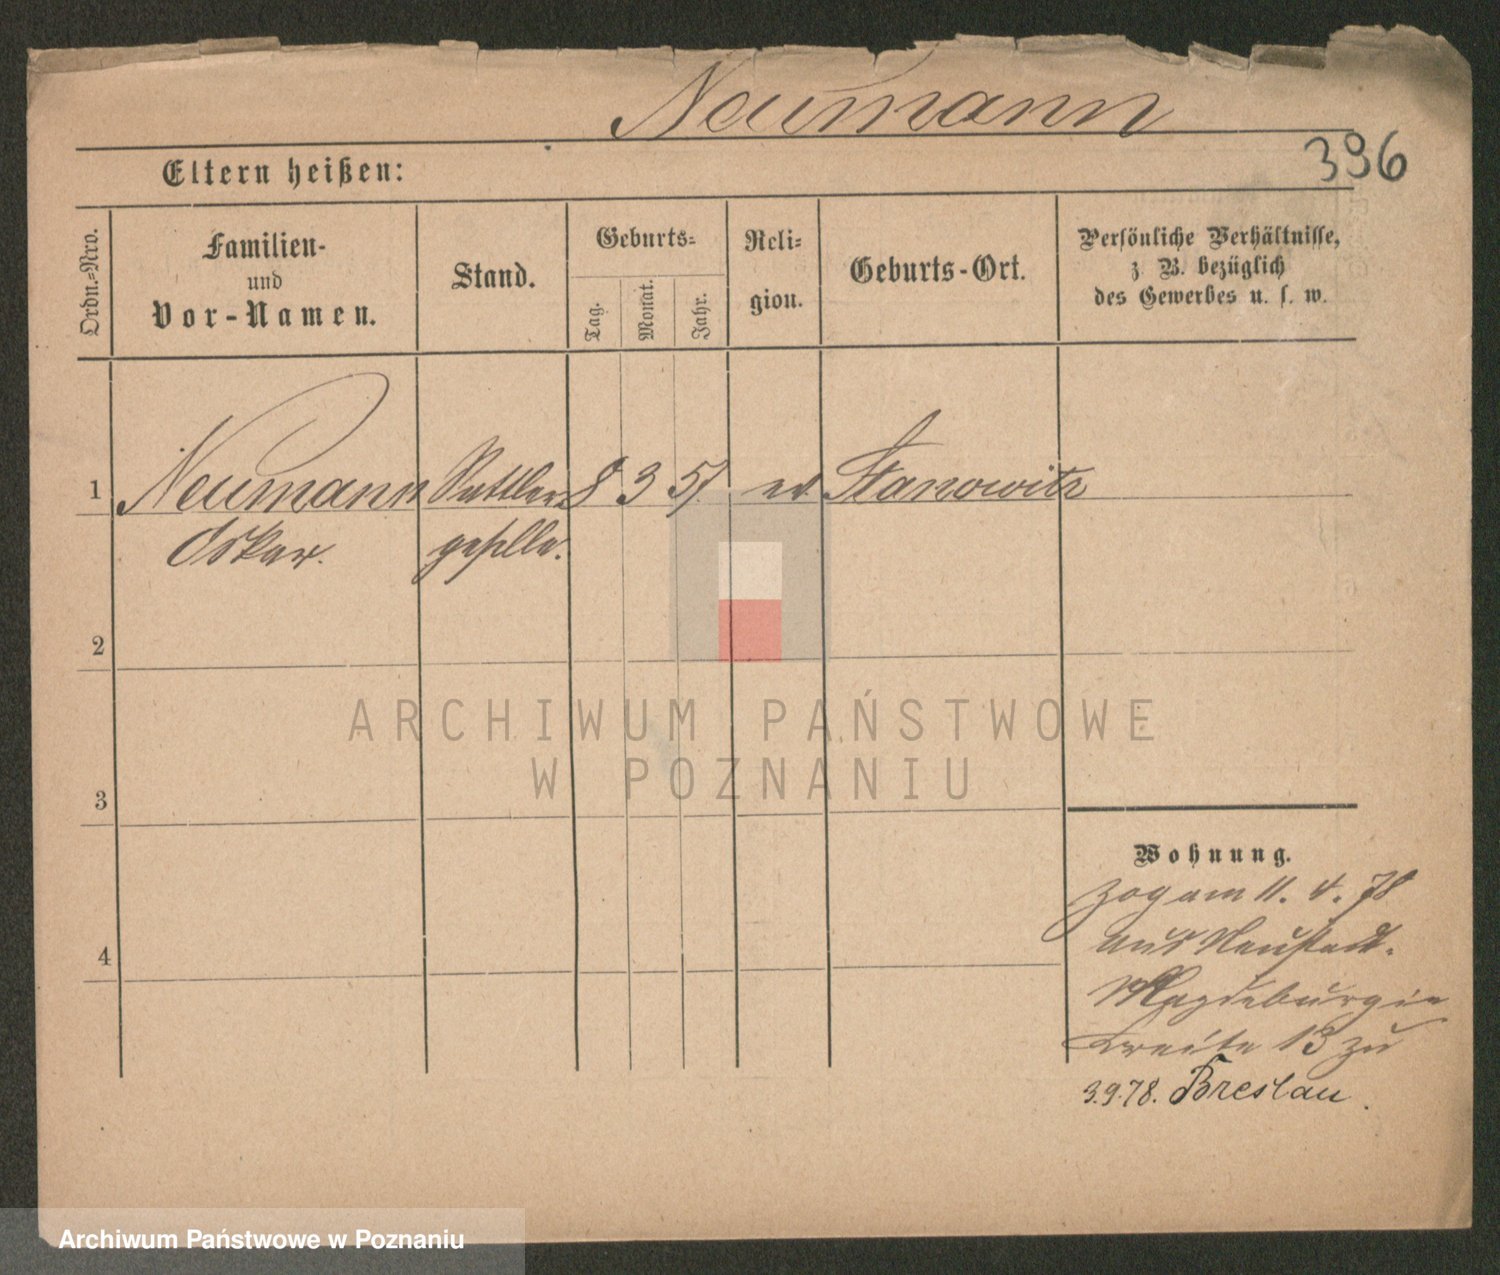 Neumann
396
Eltern heißen:
Ordn.=Nro.
Familien-
und
Vor-Namen.
Stand.
Geburts=
Tag.
Monat.
Jahr.
Reli=
gion.
Geburts-Ort.
Persönliche Verhältnisse,
z B. bezüglich
des Gewerbes u. s. w.
1 Neumann Sattler 8 3 57 ev Stanowitz
Oskar. geselle.
2
3
4
ARCHIWUM PAŃSTWOWE
W POZNANIU
Wohnung.
zog am 11. 4. 78
aus Neustadt-
Magdeburg in
Breite 13 zu
3.9.78. Breslau.
Archiwum Państwowe w Poznaniu